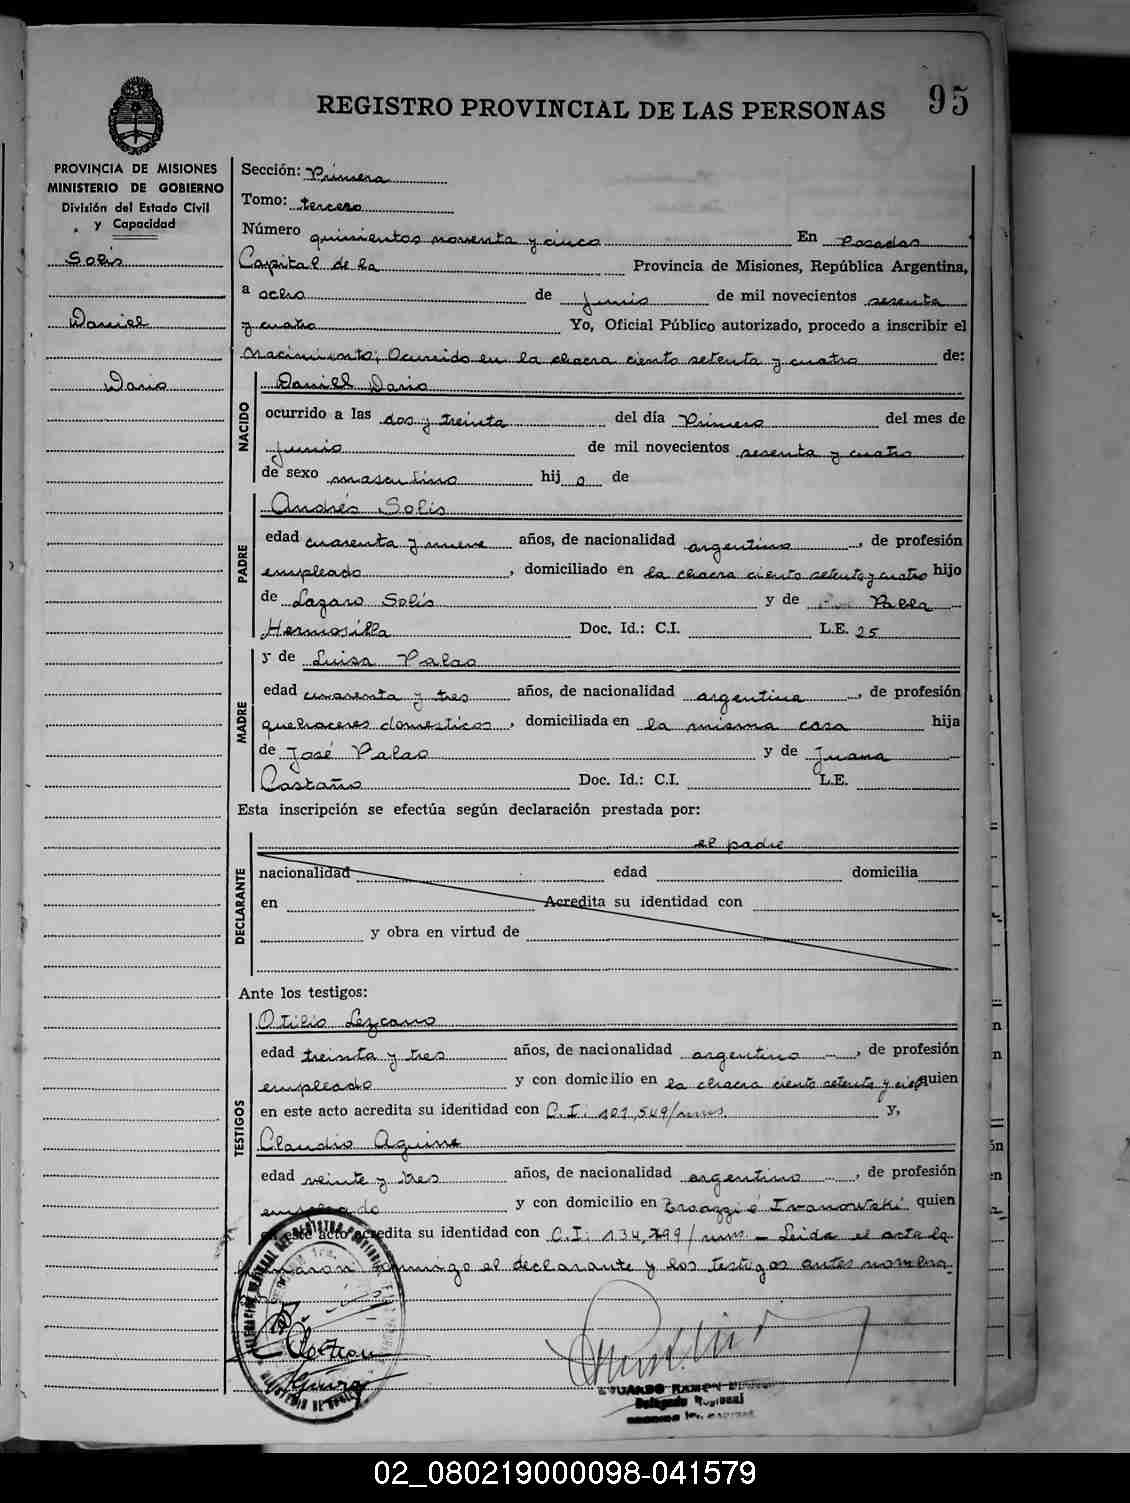 REGISTRO PROVINCIAL DE LAS PERSONAS 95
PROVINCIA DE MISIONES
MINISTERIO DE GOBIERNO
División del Estado Civil
y Capacidad
Solis
Daniel
Dario
Sección: Primera
Tomo: tercero
Número quinientos noventa y cinco En Posadas
Capital de la Provincia de Misiones, República Argentina,
a ocho de Junio de mil novecientos sesenta
y cuatro Yo, Oficial Público autorizado, procedo a inscribir el
nacimiento; Ocurrido en la chacra ciento setenta y cuatro de:
NACIDO
Daniel Dario
ocurrido a las dos y treinta del día Primero del mes de
Junio de mil novecientos sesenta y cuatro
de sexo masculino hij o de
PADRE
Andrés Solis
edad cuarenta y nueve años, de nacionalidad argentino, de profesión
empleado, domiciliado en la chacra ciento setenta y cuatro hijo
de Lazaro Solis y de Pabla
Hermosilla Doc. Id.: C.I. L.E. 25
MADRE
y de Luisa Palao
edad cuarenta y tres años, de nacionalidad argentina, de profesión
quehaceres domesticos, domiciliada en la misma casa hija
de José Palao y de Juana
Castaño Doc. Id.: C.I. L.E.
Esta inscripción se efectúa según declaración prestada por:
DECLARANTE
el padre
nacionalidad edad domicilia
en Acredita su identidad con
y obra en virtud de
Ante los testigos:
TESTIGOS
Otilio Lezcano
edad treinta y tres años, de nacionalidad argentino, de profesión
empleado y con domicilio en la chacra ciento setenta y quien
en este acto acredita su identidad con C.I: 101,549/mns. y,
Claudio Aguirre
edad veinte y tres años, de nacionalidad argentino, de profesión
empleado y con domicilio en Eroazzi é Iwanowski quien
en este acto acredita su identidad con C.I: 134,799/mns. — Leida el acta la
firmaron conmigo el declarante y los testigos antes nombra
Delegado Regional
02_080219000098-041579